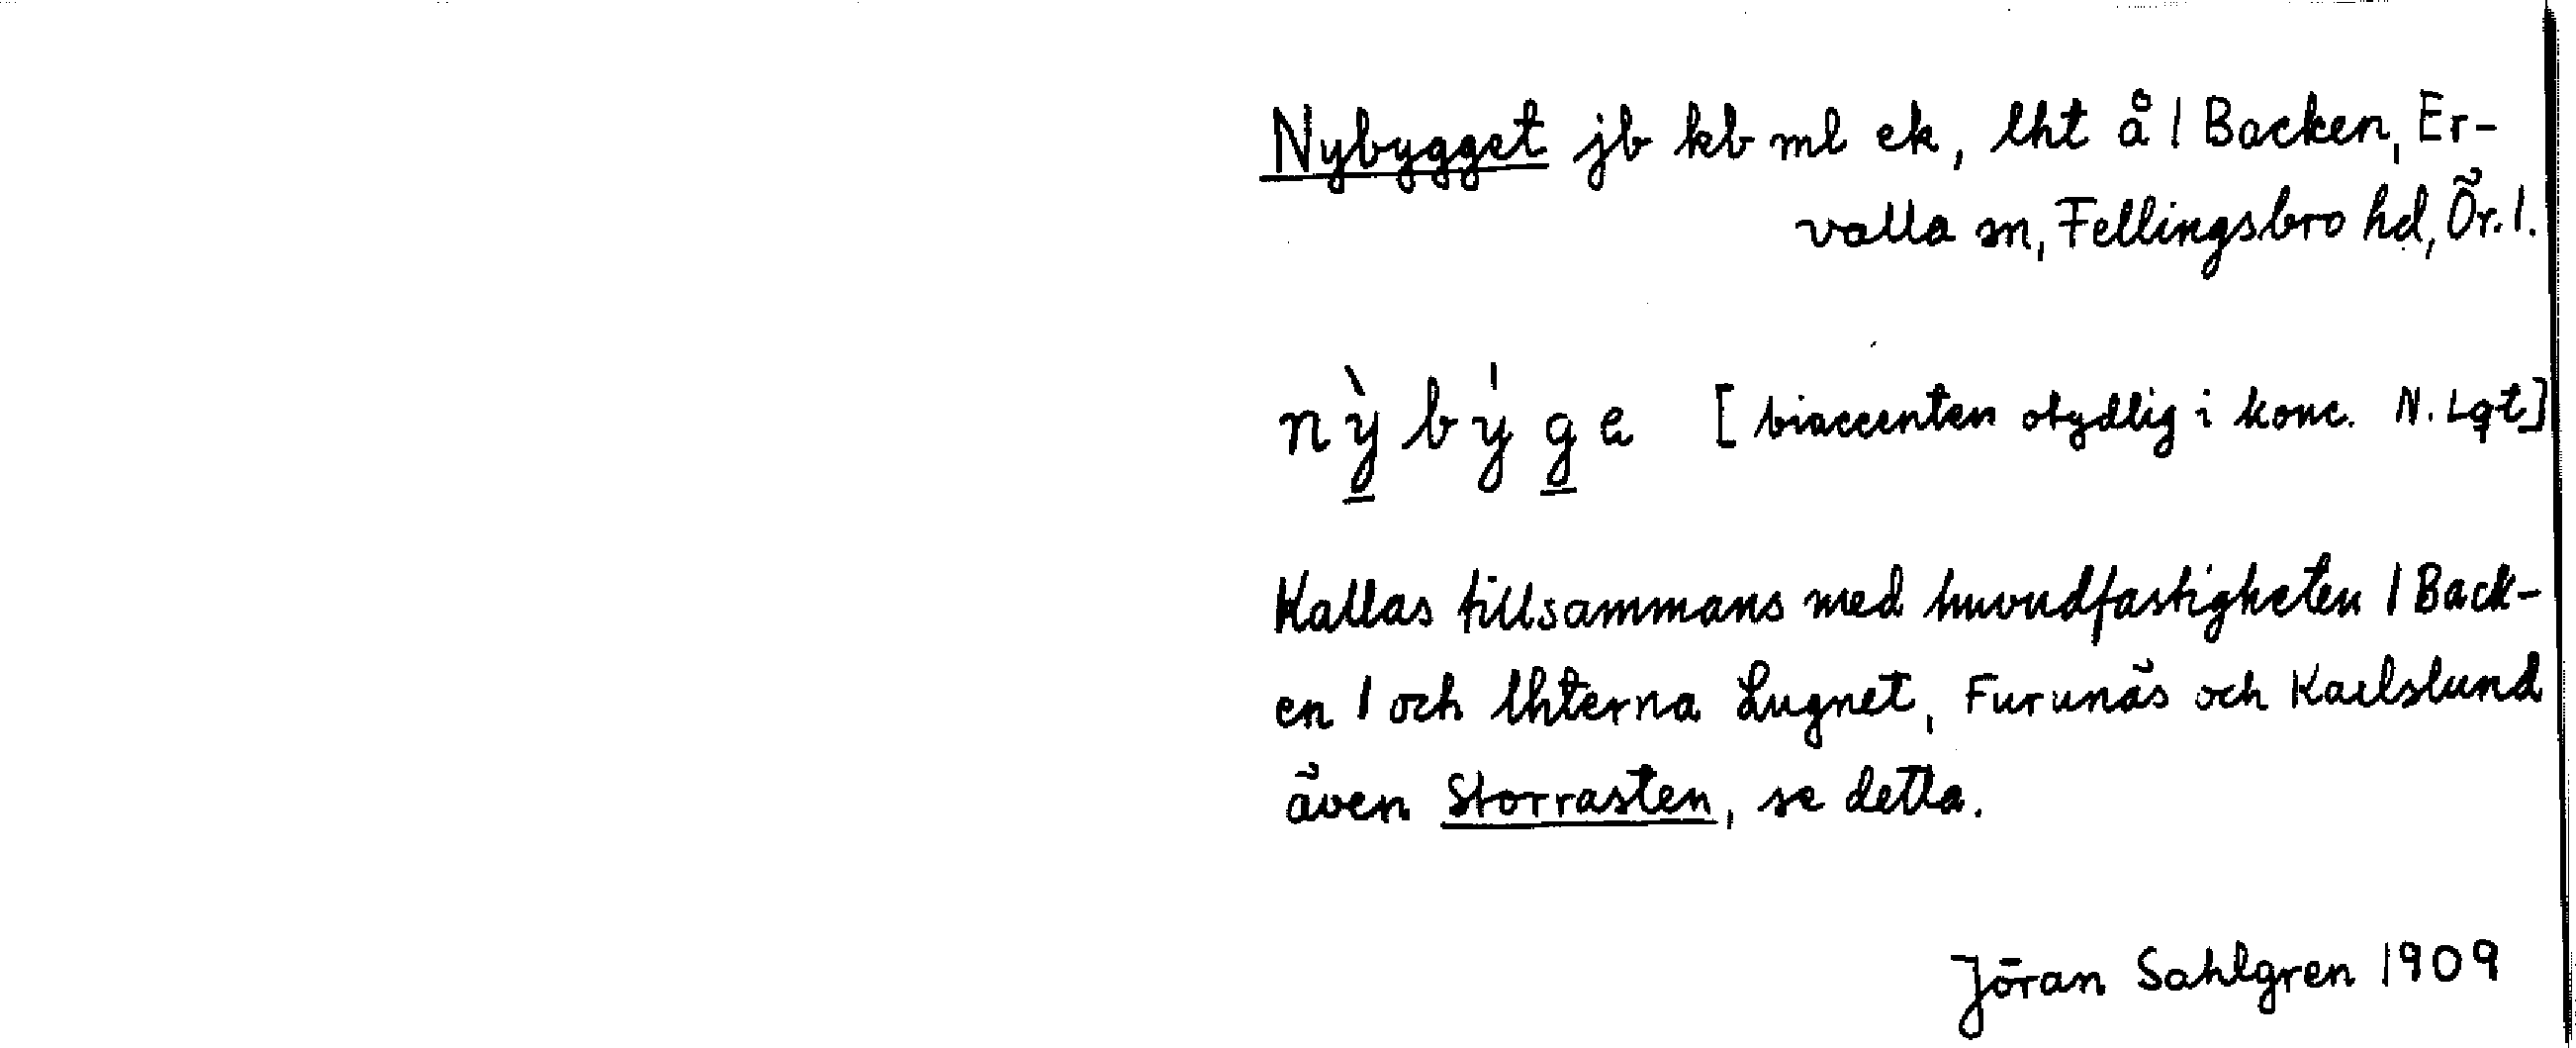 Nybygget jb kb ml ek, lht å 1 Backen, Er-
valla sn, Fellingsbro hd, Ör. l.
nỳbýge [biaccenten otydlig i konc. N. Lqt]
Kallas tillsammans med huvudfastigheten 1 Back-
en 1 och lhterna Lugnet, Furunäs och Karlslund
även Storrasten, se detta.
Jöran Sahlgren 1909